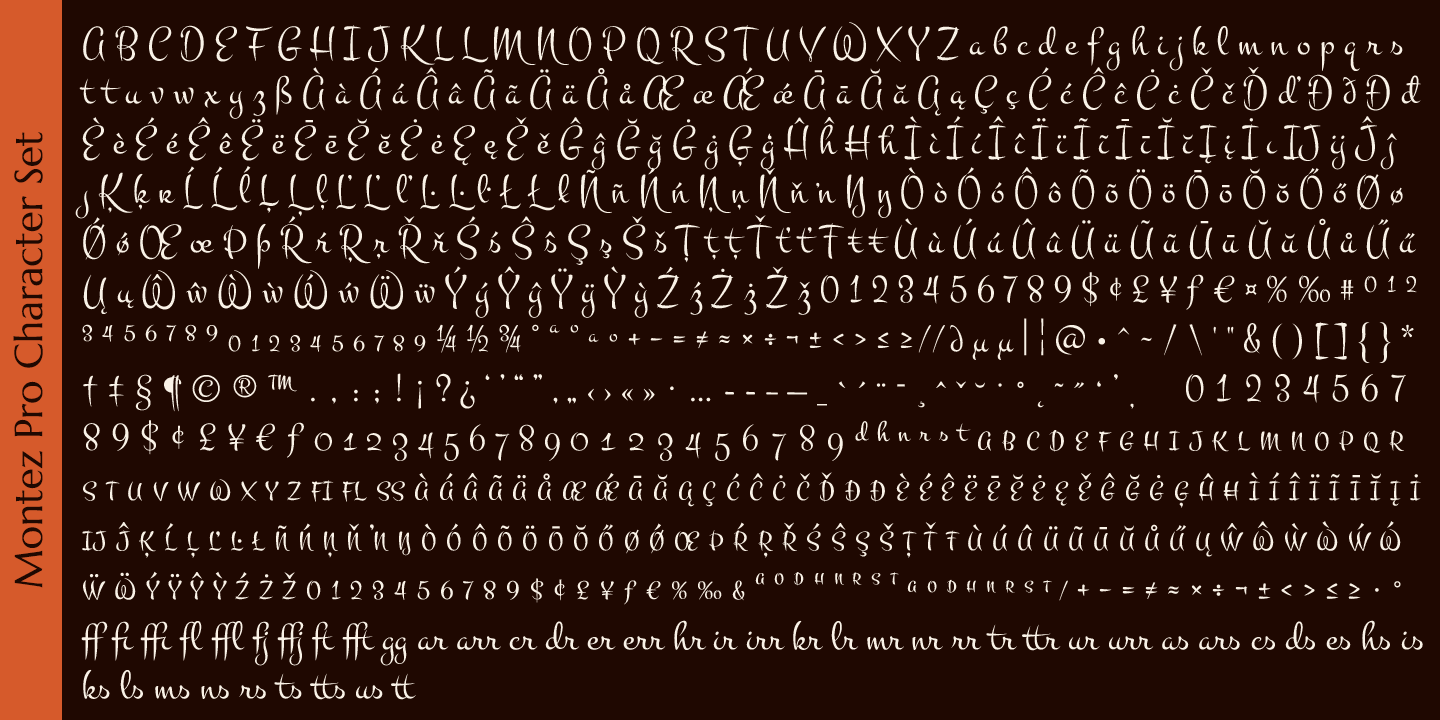 Montez Pro Character Set
A B C D E F G H I J K L L M N O P Q R S T U V W X Y Z a b c d e f g h i j k l m n o p q r s
t t u v w x y z ß À à Á á Â â Ã ã Ä ä Å å Æ æ Ǽ ǽ Ā ā Ă ă Ą ą Ç ç Ć ć Ĉ ĉ Ċ ċ Č č Ď ď Ð ð Đ đ
È è É é Ê ê Ë ë Ē ē Ĕ ĕ Ė ė Ę ę Ě ě Ĝ ĝ Ğ ğ Ġ ġ Ģ ģ Ĥ ĥ Ħ ħ Ì ì Í í Î î Ï ï Ĩ ĩ Ī ī Ĭ ĭ Į į İ ı IJ ij Ĵ ĵ
ȷ Ķ ķ ĸ Ĺ Ĺ ĺ Ļ Ļ ļ Ľ Ľ ľ Ŀ Ŀ ŀ Ł Ł ł Ñ ñ Ń ń Ņ ņ Ň ň ŉ Ŋ ŋ Ò ò Ó ó Ô ô Õ õ Ö ö Ō ō Ŏ ŏ Ő ő Ø ø
Ǿ ǿ Œ œ Þ þ Ŕ ŕ Ŗ ŗ Ř ř Ś ś Ŝ ŝ Ş ş Š š Ţ ţ ţ Ť ť ť Ŧ ŧ ŧ Ù ù Ú ú Û û Ü ü Ũ ũ Ū ū Ŭ ŭ Ů ů Ű ű
Ų ų Ŵ ŵ Ẁ ẁ Ẃ ẃ Ẅ ẅ Ý ý Ŷ ŷ Ÿ ÿ Ỳ ỳ Ź ź Ż ż Ž ž 0 1 2 3 4 5 6 7 8 9 $ ¢ £ ¥ ƒ € ¤ % ‰ # ⁰ ¹ ²
³ ⁴ ⁵ ⁶ ⁷ ⁸ ⁹ ₀ ₁ ₂ ₃ ₄ ₅ ₆ ₇ ₈ ₉ ¼ ½ ¾ ° ª º a o + − = ≠ ≈ × ÷ ¬ ± < > ≤ ≥ / ⁄ ∂ µ μ | ¦ @ • ^ ~ / \ ' " & ( ) [ ] { } *
† ‡ § ¶ © ® ™ . , : ; ! ¡ ? ¿ ‘ ’ “ ” ‚ „ ‹ › « » · … - - – — _ ` ´ ¨ ¯ ¸ ˆ ˇ ˘ ˙ ˚ ˛ ˜ ˝ ‘ ’ , 0 1 2 3 4 5 6 7
8 9 $ ¢ £ ¥ € ƒ 0 1 2 3 4 5 6 7 8 9 0 1 2 3 4 5 6 7 8 9 d h n r s t A B C D E F G H I J K L M N O P Q R
S T U V W W X Y Z FI FL SS À Á Â Ã Ä Å Æ Ǽ Ā Ă Ą Ç Ć Ĉ Ċ Č Ď Đ Ð È É Ê Ë Ē Ĕ Ė Ę Ě Ĝ Ğ Ġ Ģ Ĥ Ħ Ì Í Î Ï Ĩ Ī Ĭ Į İ
IJ Ĵ Ķ Ĺ Ļ Ľ Ŀ Ł Ñ Ń Ņ Ň ŉ Ŋ Ò Ó Ô Õ Ö Ō Ŏ Ő Ø Ǿ Œ Þ Ŕ Ŗ Ř Ś Ŝ Ş Š Ţ Ť Ŧ Ù Ú Û Ü Ũ Ū Ŭ Ů Ű Ų Ŵ Ŵ Ẁ Ẁ Ẃ Ẃ
Ẅ Ẅ Ý Ÿ Ŷ Ỳ Ź Ż Ž 0 1 2 3 4 5 6 7 8 9 $ ¢ £ ¥ ƒ € % ‰ & A O D H N R S T A O D H N R S T / + − = ≠ ≈ × ÷ ¬ ± < > ≤ ≥ · °
ff fi ffi fl ffl fj ffj ft fft gg ar arr cr dr er err hr ir irr kr lr mr nr rr tr ttr ur urr as ars cs ds es hs is
ks ls ms ns rs ts tts us tt